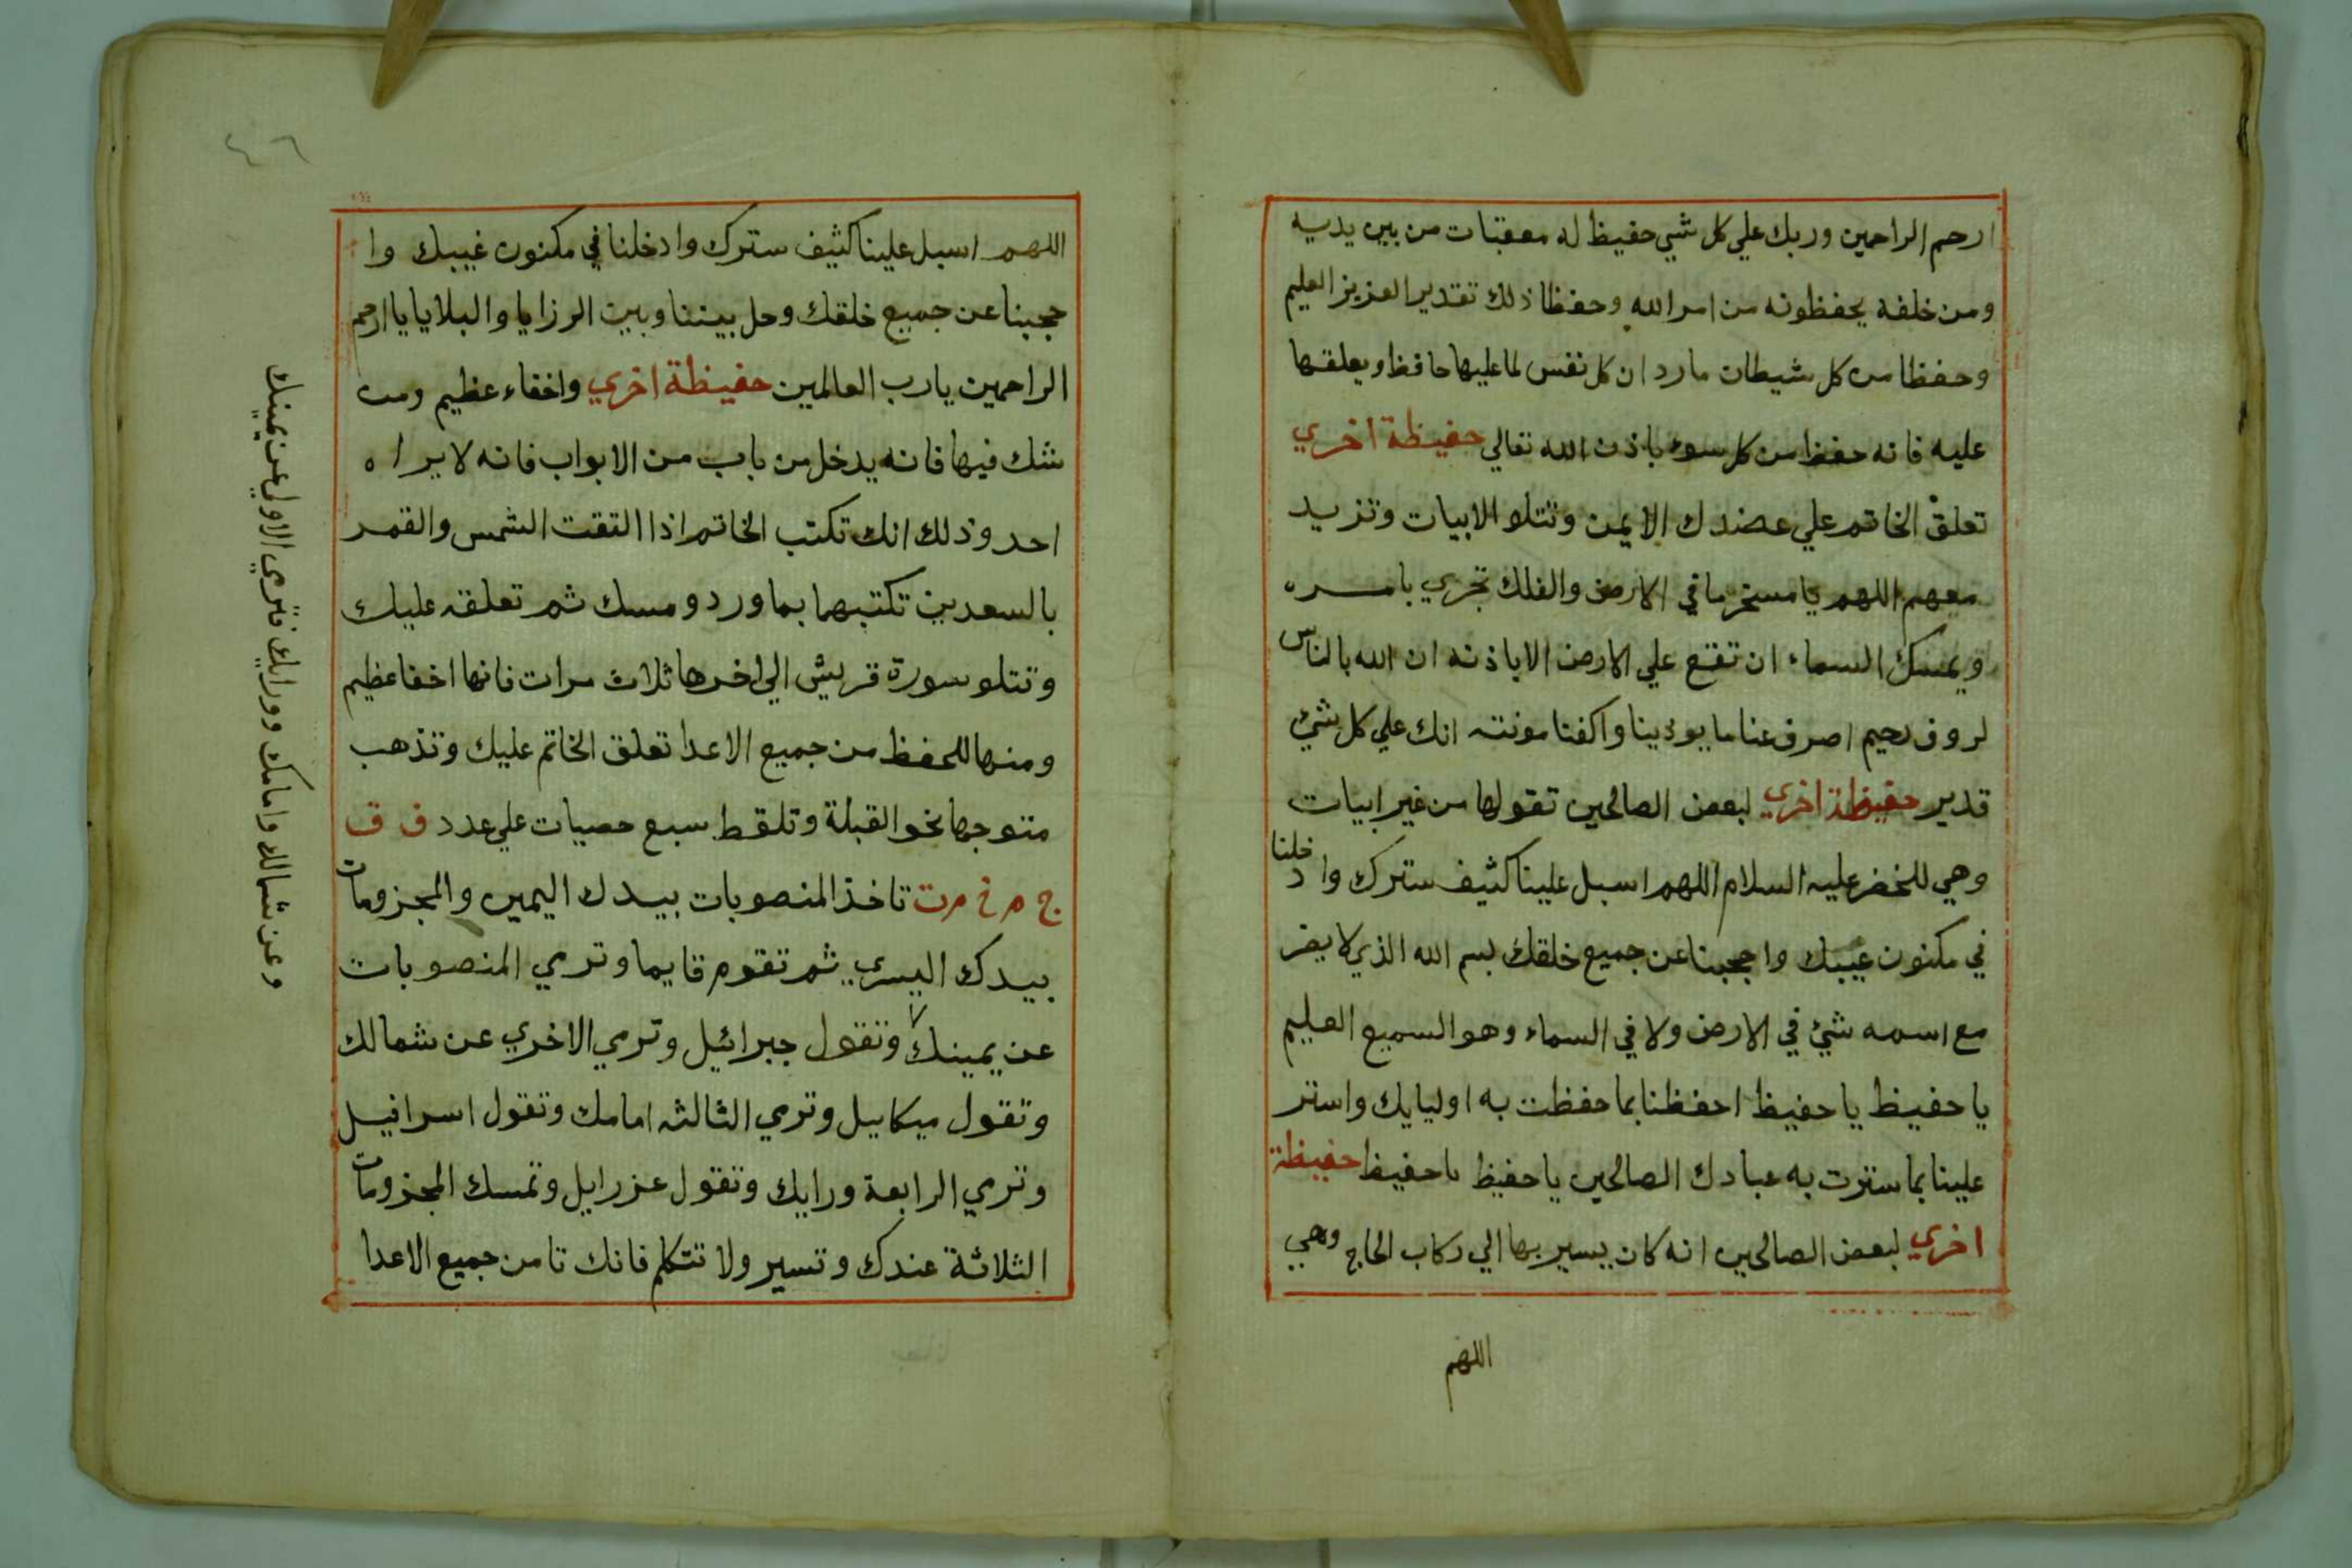 ارحم الراحمين وربك علي كل شي حفيظ له معقبات من بين يديه
ومن خلفه يحفظونه من امر الله وحفظا ذلك تقدير العزيز العليم
وحفظا من كل شيطان مارد ان كل نفس لما عليها حافظ ويعلقها
عليه فانه حفظ من كل سوء باذن الله تعالي حفيظة اخري
تعلق الخاتم علي عضدك الايمن وتتلو الابيات وتزيد
معهم اللهم يا مسخر ما في الارض والفلك تجري بامره
ويمسك السماء ان تقع علي الارض الا باذنه ان الله بالناس
لروف رحيم اصرف عنا ما يوذينا واكفنا مونته انك علي كل شئ
قدير حفيظة اخري لبعض الصالحين تقولها من غير ابيات
وهي للخضر عليه السلام اللهم اسبل علينا كثيف سترك وادخلنا
في مكنون غيبك واحجبنا عن جميع خلقك بسم الله الذي لا يضر
مع اسمه شئ في الارض ولا في السماء وهو السميع العليم
يا حفيظ يا حفيظ احفظنا بما حفظت به اوليايك واستر
علينا بما سترت به عبادك الصالحين يا حفيظ يا حفيظ حفيظة
اخري لبعض الصالحين انه كان يسير بها الي ركاب الحاج وهي
اللهم
٤٦
اللهم اسبل علينا كثيف سترك وادخلنا في مكنون غيبك وا
حجبنا عن جميع خلقك وحل بيننا وبين الرزايا والبلايا يا ارحم
الراحمين يا رب العالمين حفيظة اخري واخفاء عظيم ومن
شك فيها فانه يدخل من باب من الابواب فانه لا يراه
احد وذلك انك تكتب الخاتم اذا التقت الشمس والقمر
بالسعدين تكتبهما بماورد ومسك ثم تعلقه عليك
وتتلو سورة قريش الي اخرها ثلاث مرات فانها اخفا عظيم
ومنها للحفظ من جميع الاعدا تعلق الخاتم عليك وتذهب
متوجها نحو القبلة وتلقط سبع حصيات علي عدد ف ق
ج م خ م ت تاخذ المنصوبات بيدك اليمين والمجزومات
بيدك اليسري ثم تقوم قايما وترمي المنصوبات
عن يمينك وتقول جبرائيل وترمي الاخري عن شمالك
وتقول ميكاييل وترمي الثالثه امامك وتقول اسرافيل
وترمي الرابعة ورايك وتقول عزرايل وتمسك المجزومات
الثلاثة عندك وتسير ولا تتكلم فانك تامن جميع الاعدا
وعن شمالك وامامك وورايك فترمي الاولي عن يمينك